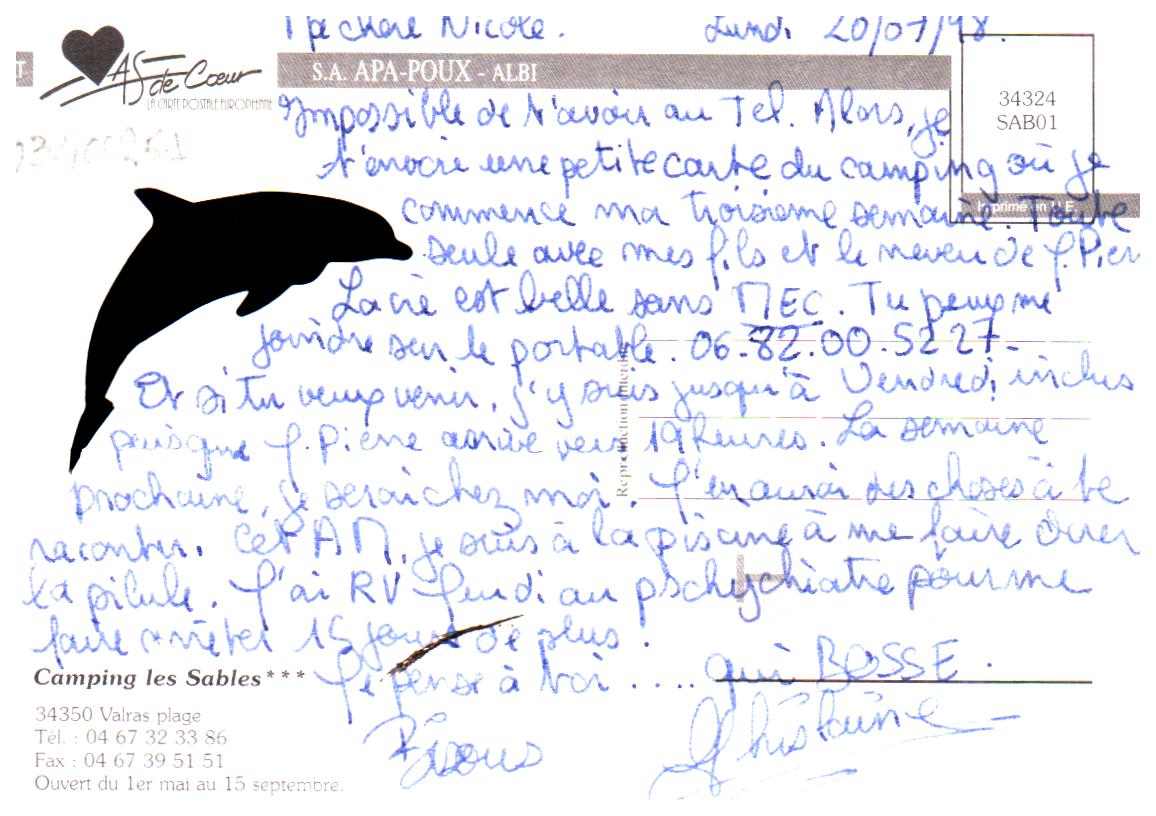 T pe chère Nicole. Lundi 20/07/98.
As de Cœur
LA CARTE POSTALE EUROPÉENNE
S.A. APA-POUX - ALBI
34324
SAB01
Imprimé en U.E.
Impossible de t'avoir au Tel. Alors, je
t'envoie une petite carte du camping où je
commence ma troisième semaine. Toute
seule avec mes fils et le neveu de J. Pierr
La vie est belle sans MEC. Tu peux me
joindre sur le portable. 06.82.00.52 27.
Et si tu veux venir, j'y suis jusqu'à Vendredi inclus
puisque J. Pierre arrive vers 19 heures. La semaine
prochaine, je serai chez moi. J'en aurai des choses à te
raconter. Cet AM, je suis à la piscine à me faire dorer
la pilule. J'ai RV Jeudi au pschychiatre pour me
faire arrêter 15 jours de plus.
Je pense à toi .... qui BOSSE.
Bisous Ghislaine
Reproduction interdite
Camping les Sables***
34350 Valras plage
Tél. : 04 67 32 33 86
Fax : 04 67 39 51 51
Ouvert du 1er mai au 15 septembre.